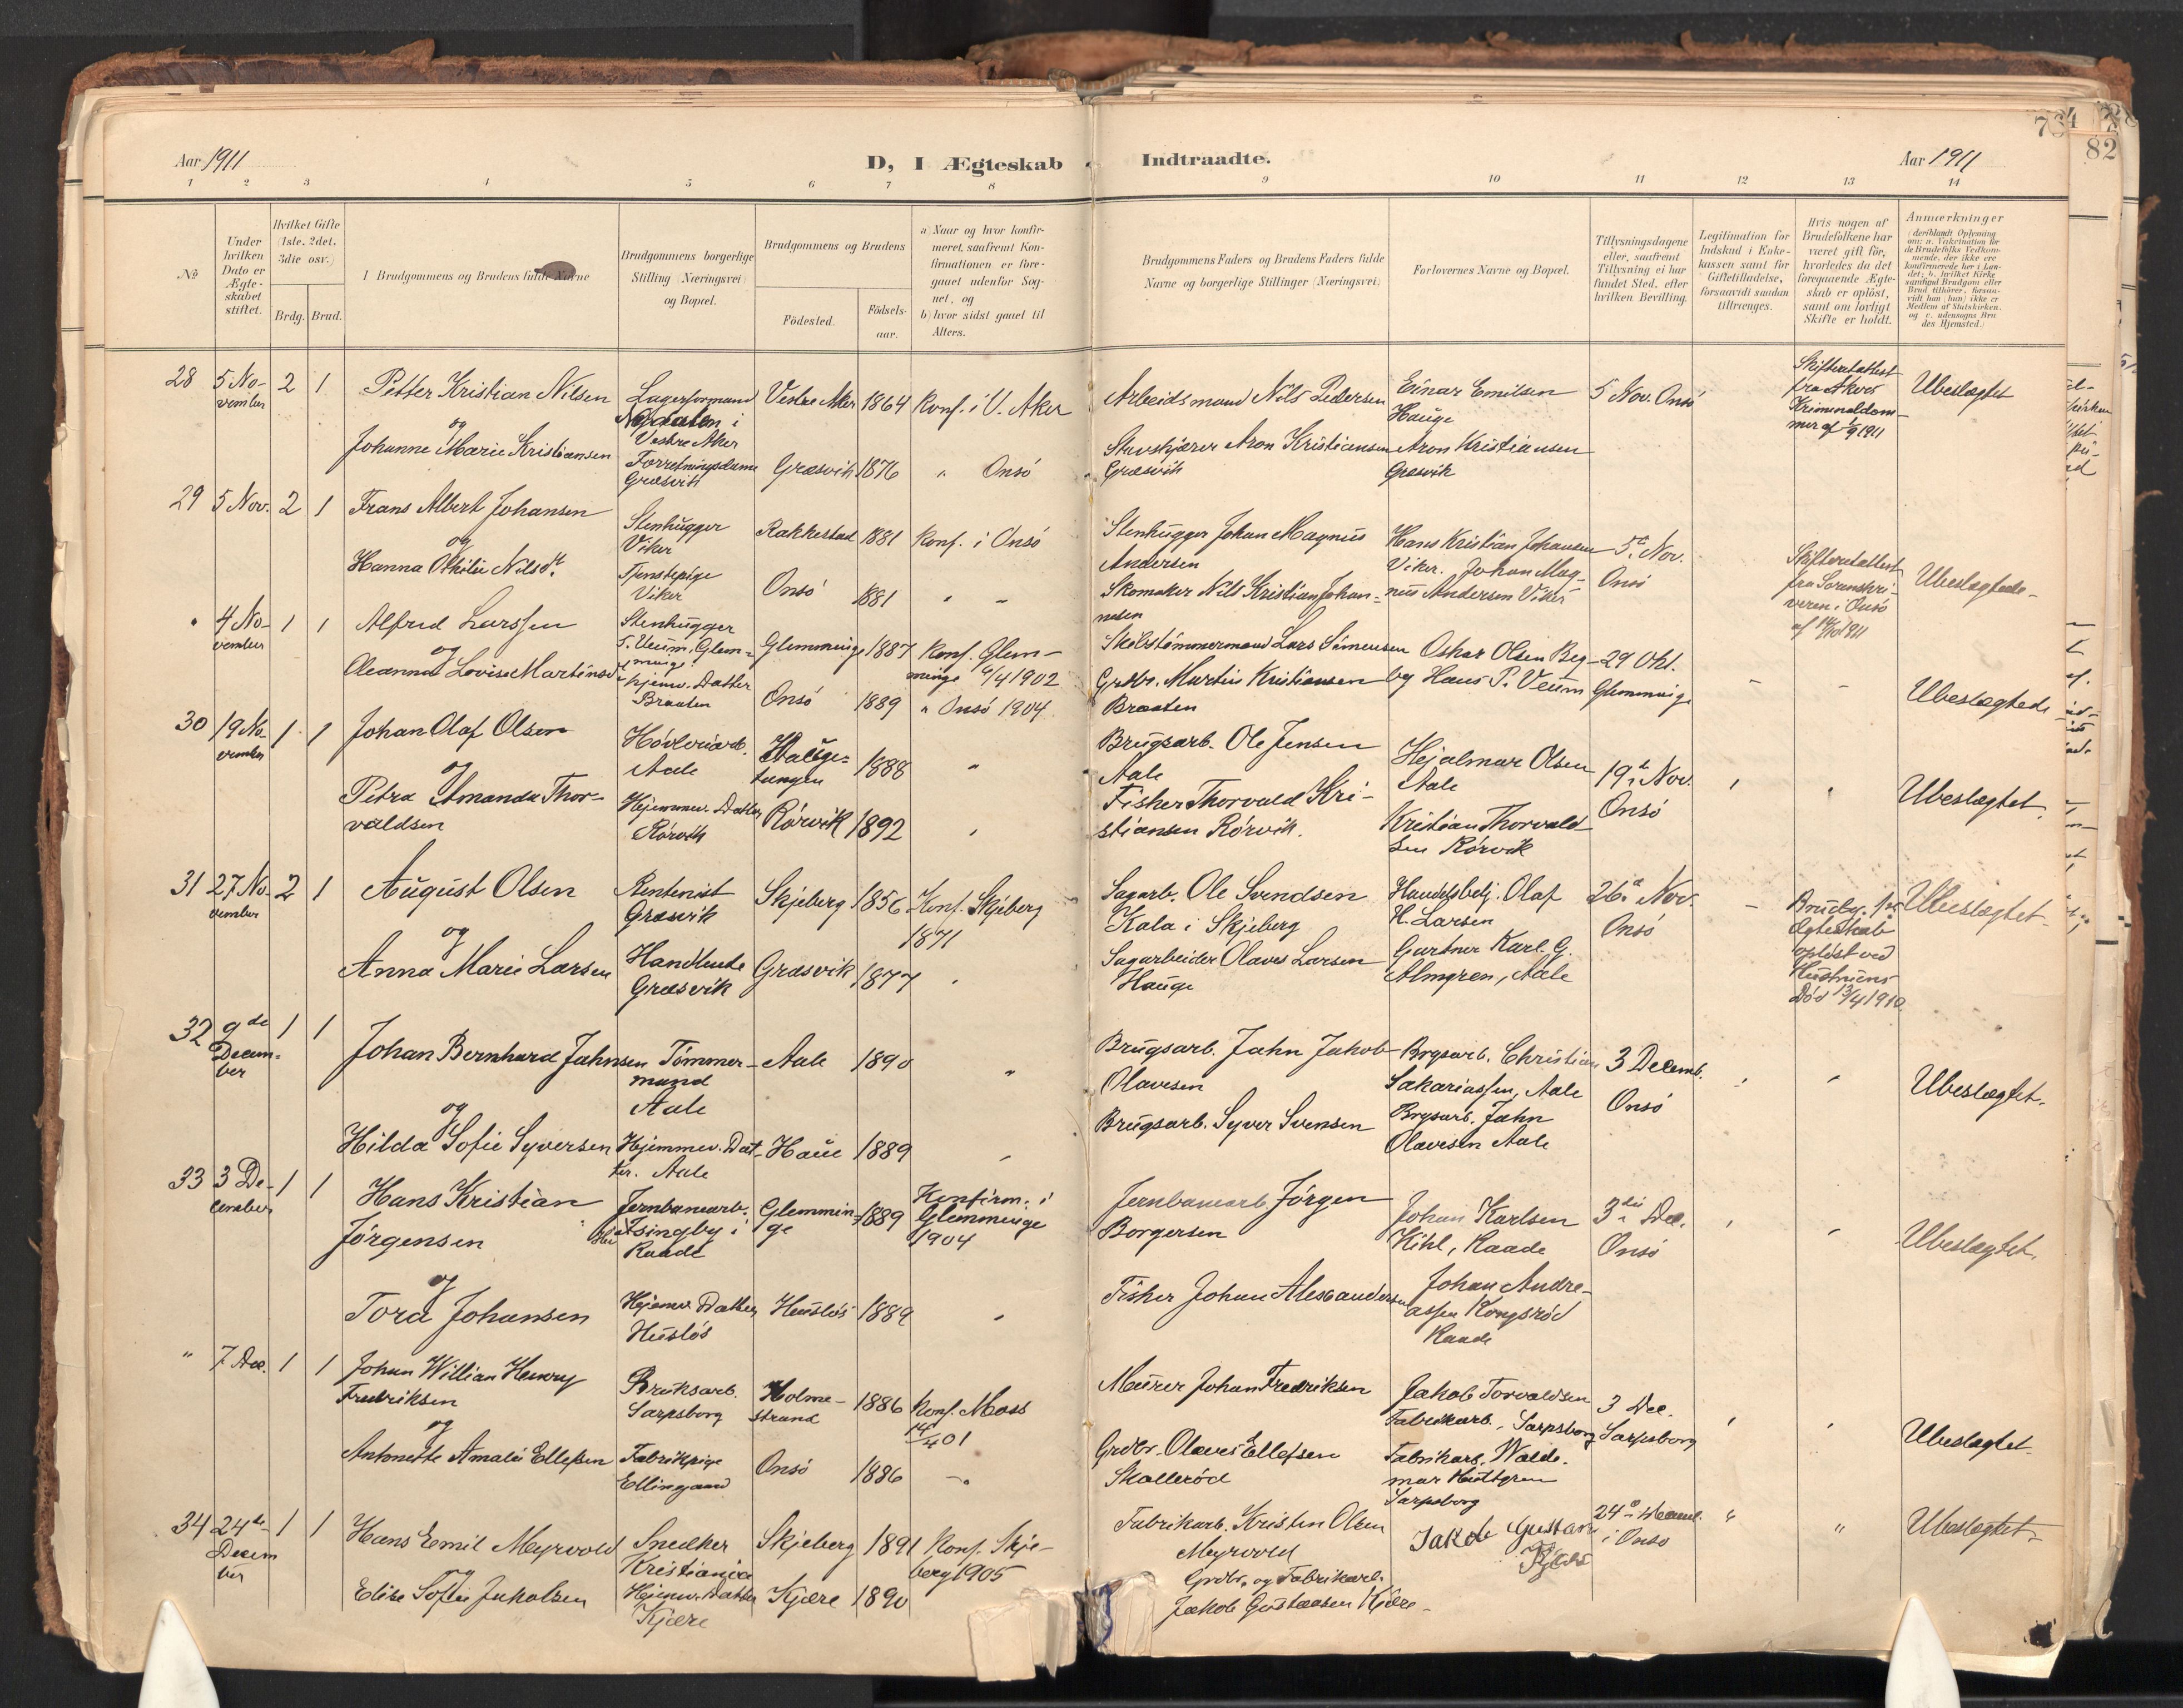 Aar 1911
D, I Ægteskab Indtraadte.
Aar 1911
82
1 2 3 4 5 6 7 8 9 10 11 12 13 14
No
Under hvilken Dato er Ægteskabet stiftet.
Hvilket Gifte (1ste, 2det, 3die osv.)
Brdg. Brud.
I Brudgommens og Brudens fulde Navne
Brudgommens borgerlige Stilling (Næringsvei) og Bopæl.
Brudgommens og Brudens
Fødested.
Fødsels-aar.
a) Naar og hvor konfirmeret, saafremt Konfirmationen er foregaaet udenfor Sognet, og
b) hvor sidst gaaet til Alters.
Brudgommens Faders og Brudens Faders fulde Navne og borgerlige Stillinger (Næringsvei)
Forlovernes Navne og Bopæl.
Tillysningsdagene eller, saafremt Tillysning ei har fundet Sted, efter hvilken Bevilling.
Legitimation for Indskud i Enkekassen samt for Giftetilladelse, forsaavidt saadan tiltrænges.
Hvis nogen af Brudefolkene har været gift før, hvorledes da det foregaaende Ægteskab er opløst, samt om lovligt Skifte er holdt.
Anmærkninger
(deriblandt Oplysning om: a. Vakcination for de Brudefolks Vedkommende, der ikke ere konfirmerede her i Landet; b. hvilket Kirkesamfund Brudgom eller Brud tilhører, forsaavidt han (hun) ikke er Medlem af Statskirken, og c. udensogns Brudes Hjemsted.)
28 5 November 2 1 Petter Kristian Nilsen Lagerformand Vestre Aker 1864 Konf. i V. Aker Arbeidsmand Nils Pedersen Einar Emilsen Hauge 5 Nov. Onsö Skifteattest fra Akers Kriminaldommer af 1/9 1911 Ubeslægtet
i Vestre Aker
og
Johanne Marie Kristiansen Forretningsdame Græsvik Græsvik 1876 " Onsö Aron Kristiansen Græsvik Aron Kristiansen Græsvik
29 5 Nov. 2 1 Frans Albert Johansen Stenhugger Viker Rakkestad 1881 Konf. i Onsö Stenhugger Johan Magnus Andersen Hans Kristian Johansen Viker. Johan Magnus Andersen Viker 5te Nov. Onsö Skifteretattest fra Sorenskriveren i Onsö af 14/10 1911 Ubeslægtede
og
Hanna Othilie Nilsdt. Tjenstepige Viker Onsö 1881 " " Skomaker Nils Kristian Johannesen
" 4 November 1 1 Alfred Larssen Stenhugger Glemminge Glemminge 1887 Konf. Glemminge 6/4 1902 Skibstömmermand Lars Simensen Oskar Olsen Begby Hans P. Veum 29 Okt. Glemminge - - Ubeslægtede
og
Oleanna Lovise Martinsd. Hjemv. Datter Braaten Onsö 1889 " Onsö 1904 Grdbr. Martin Kristiansen Braaten
30 19 November 1 1 Johan Olaf Olsen Hövleriarb. Aale Haugetangen 1888 " Brugsarb. Ole Jensen Aale Hejalmar Olsen Aale 19de Nov. Onsö Ubeslægtet
og
Petra Amanda Thorvaldsen Hjemmev. Datter Rörvik Rörvik 1892 " Fisker Thorvald Kristiansen Rörvik. Kristian Thorvaldsen Rörvik
31 27 November 2 1 August Olsen Rentenist Græsvik Skjeberg 1856 Konf. Skjeberg 1871 Sagarb. Ole Svendsen Kala i Skjeberg Handelsbetj. Olaf H. Larsen 26de Nov. Onsö - Brudg. 1ste Ægteskab opløst ved Hustruens Död 13/4 1910 Ubeslægtet
og
Anna Marie Larsen Handlende Græsvik Græsvik 1877 " Sagarbeider Olaves Larsen Hauge Gartner Karl G. Almgren, Aale
32 9de December 1 1 Johan Bernhard Jahnsen Tömmermand Aale Aale 1890 " Brugsarb. Jahn Jakob Olavesen Brugsarb. Christian Sakariassen, Aale 3 Decemb. Onsö Ubeslægtet
og
Hilda Sofie Syversen Hjemmev. Datter. Aale Haue 1889 " Brugsarb. Syver Svensen Brgsarb. Jahn Olavesen Aale
33 3 December 1 1 Hans Kristian Jörgensen Jernbanearb. i Raade Glemminge 1889 Konfirm. i Glemminge 1904 Jernbanearb Jörgen Borgersen Johan Karlsen Kihl, Raade 3die Dec. Onsö Ubeslægtet
og
Tora Johansen Hjemv. Datter Huslös Huslös 1889 " Fisker Johan Alexandersen Johan Andreassen Kongsröd Raade
" 7 Dec. 1 1 Johan Willian Henry Fredriksen Bruksarb. Sarpsborg Holmestrand 1886 Konf. Moss 14/4 01 Maurer Johan Fredriksen Jakob Torvaldsen Fabrikarb., Sarpsborg 3 Dec. Sarpsborg Ubeslægtet
og
Antonette Amalie Ellefsen Fabrikpige Ellingaard Onsö 1886 " Grdbr. Olaves Ellefsen Skalleröd Fabrikarb. Waldemar Hultgren Sarpsborg
34 24de December 1 1 Hans Emil Meyrvold Snedker Kristiania Skjeberg 1891 Konf. Skjeberg 1905 Fabrikarb. Kristen Olsen Meyrvold Jakob Gustavs Kjære 24de i Onsö " " Ubeslægtet
og
Elise Sofie Jakobsen Hjemv. Datter Kjære Kjære 1890 Grdbr. og Fabrikarb. Jakob Gustavsen Kjære